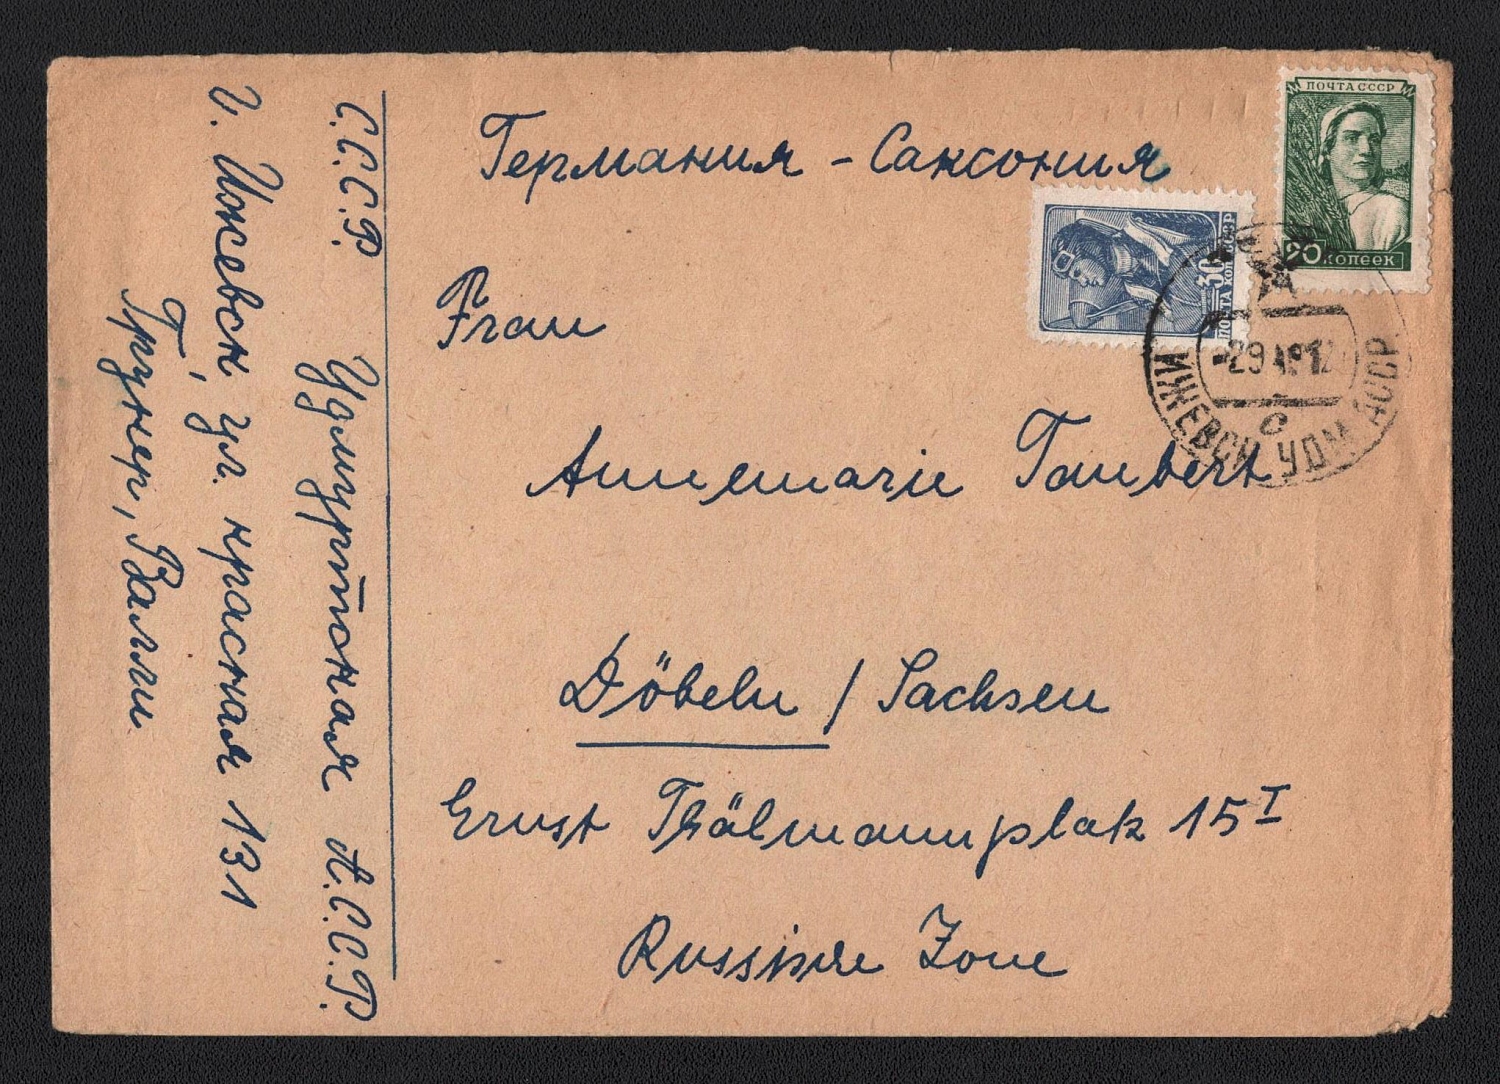 Германия - Саксония
Frau
Annemarie Taubert
Döbeln / Sachsen
Ernst Thälmannplatz 15 I
Russische Zone
С.С.С.Р. Удмуртская А.С.С.Р.
г. Ижевск ул. красная 131
Грунер, Валли
ПОЧТА СССР
20 КОПЕЕК
30
ПОЧТА КОП. СССР
ИЖЕВСК УДМ АССР
-29
с